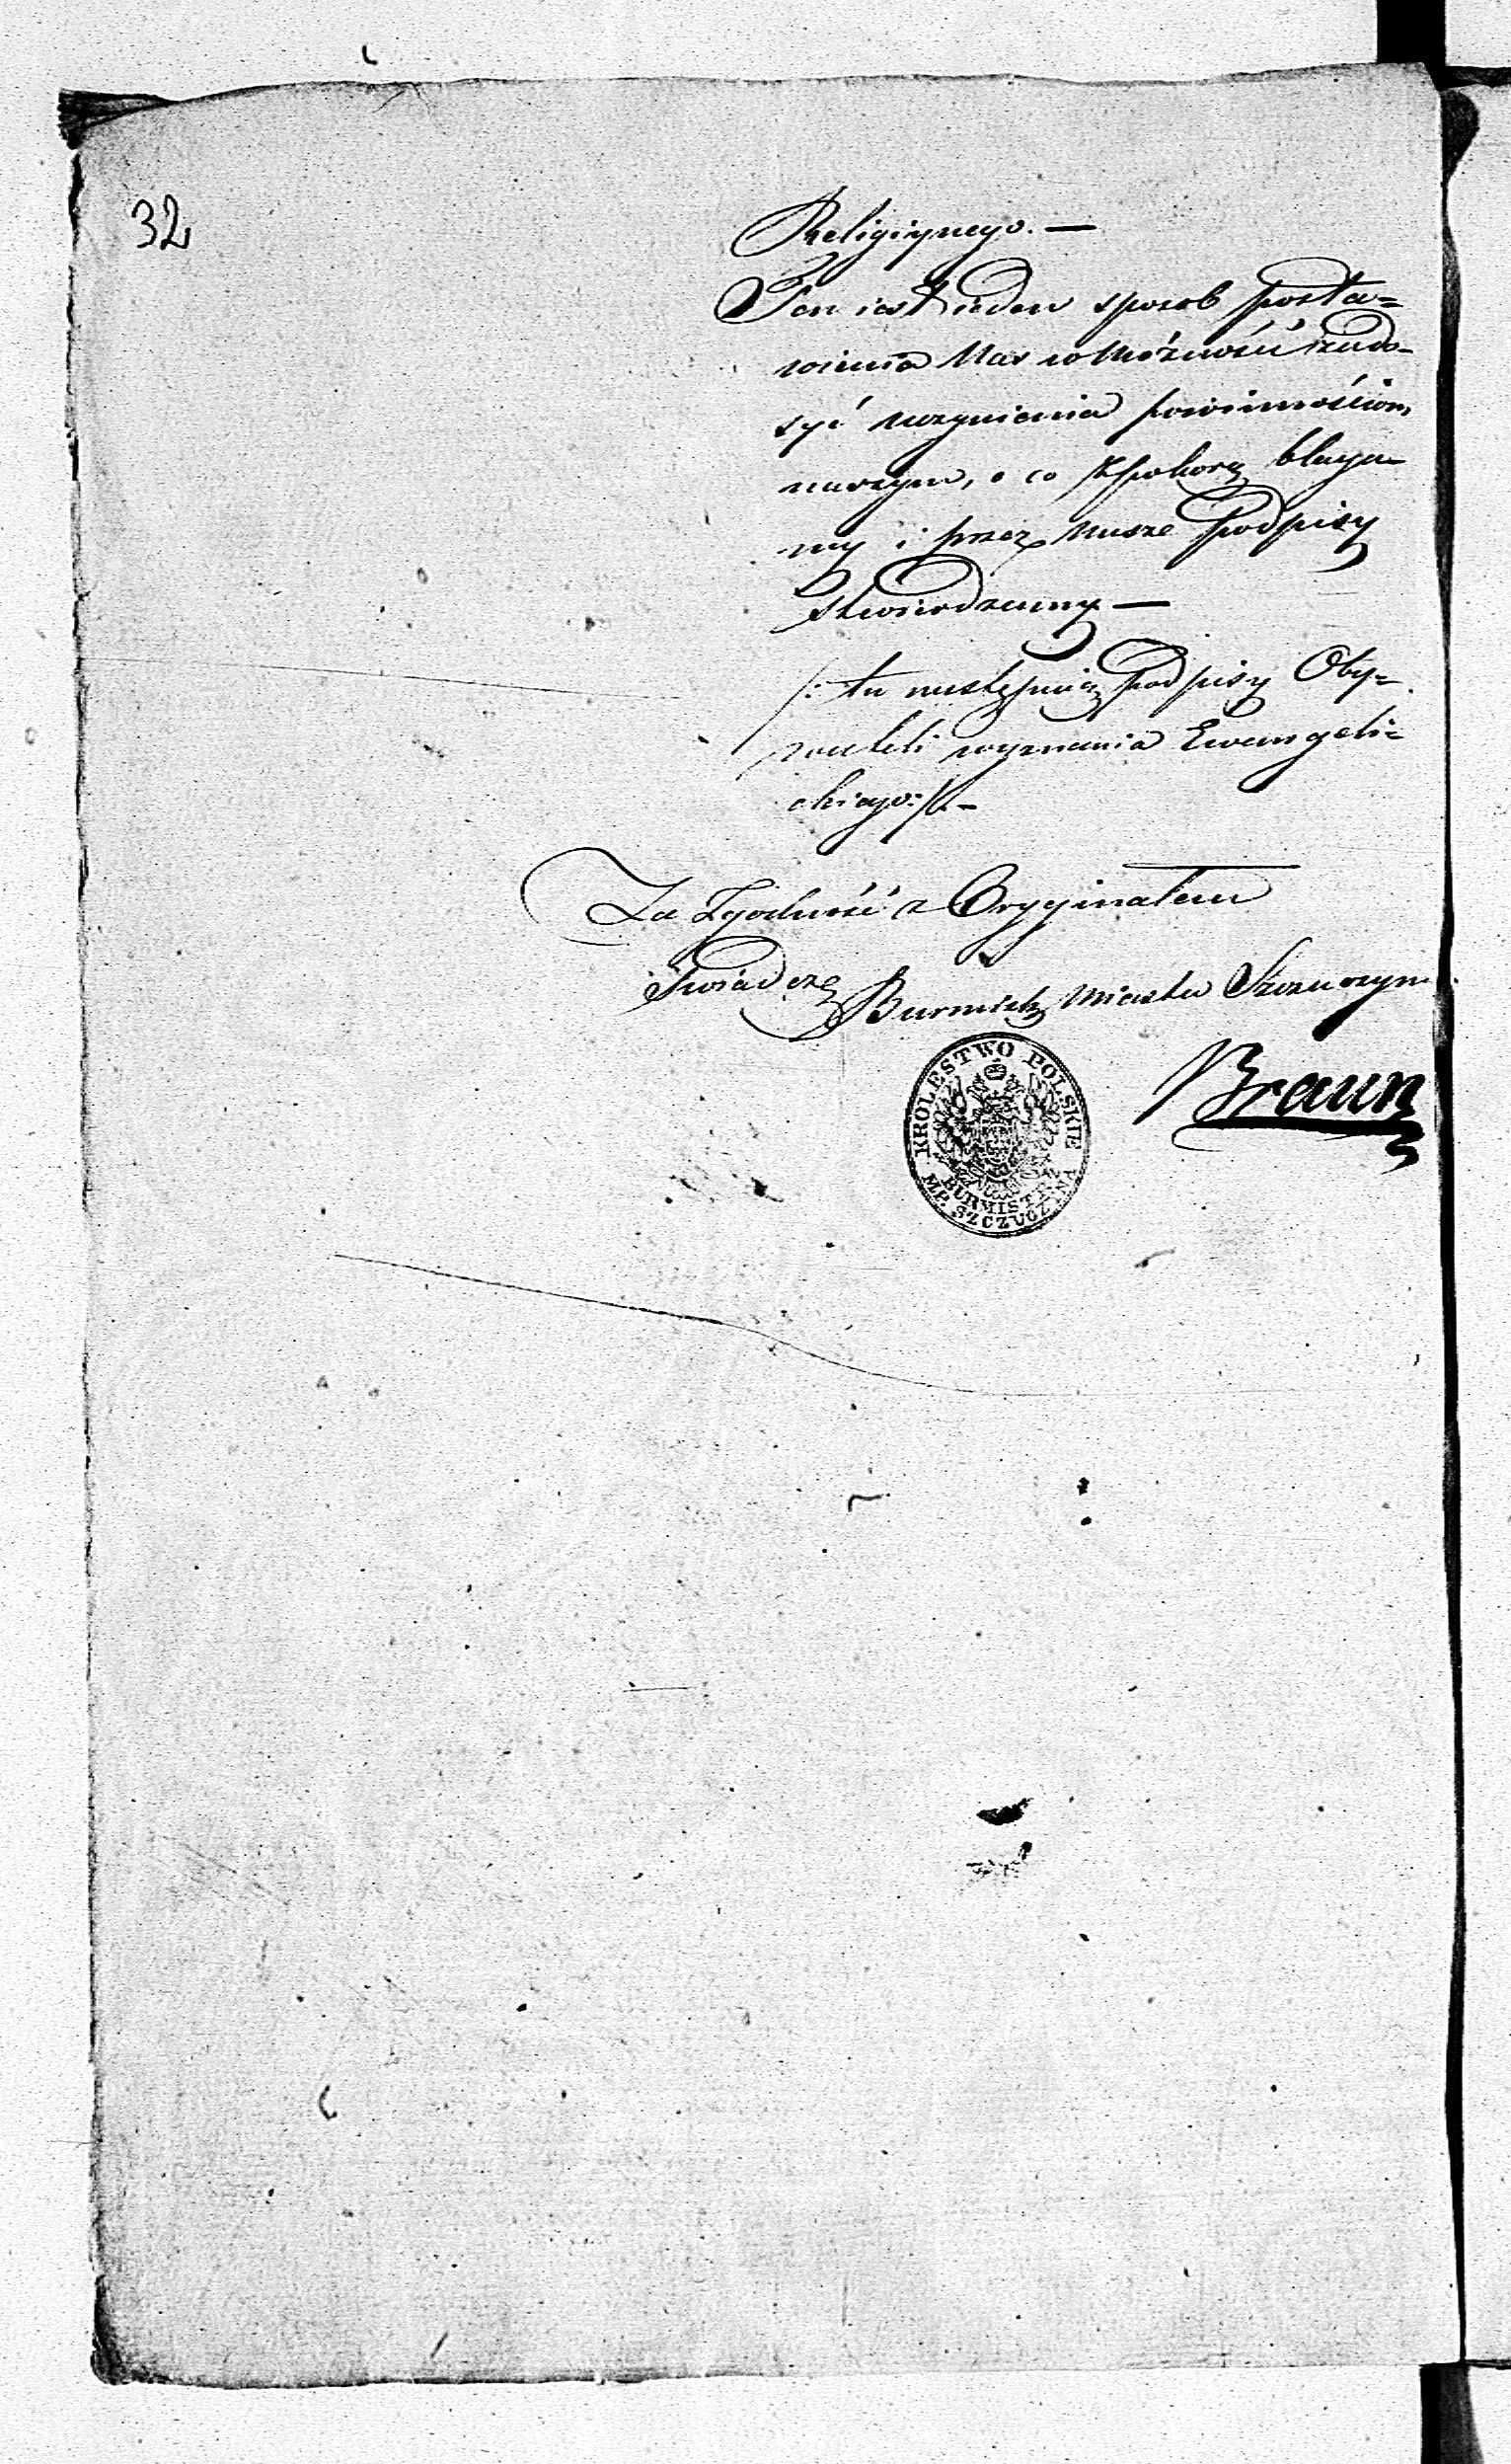 32
Religiynego. —
Ten iest ieden sposob posta=
wienia Nas w możności zado-
syć uczynienia powinnościom
naszym, o co z pokorą błaga-
my i przez Nasze podpisy
stwierdzamy —
/: tu następuią podpisy Oby=
wateli wyznania Ewangeli=
ckiego :/ –
Za Zgodność z Oryginałem
Świadczę
Burmistrz Miasta Szczuczyn
Braun
KROLESTWO POLSKIE
BURMISTRZ
MP. SZCZUCZYNA